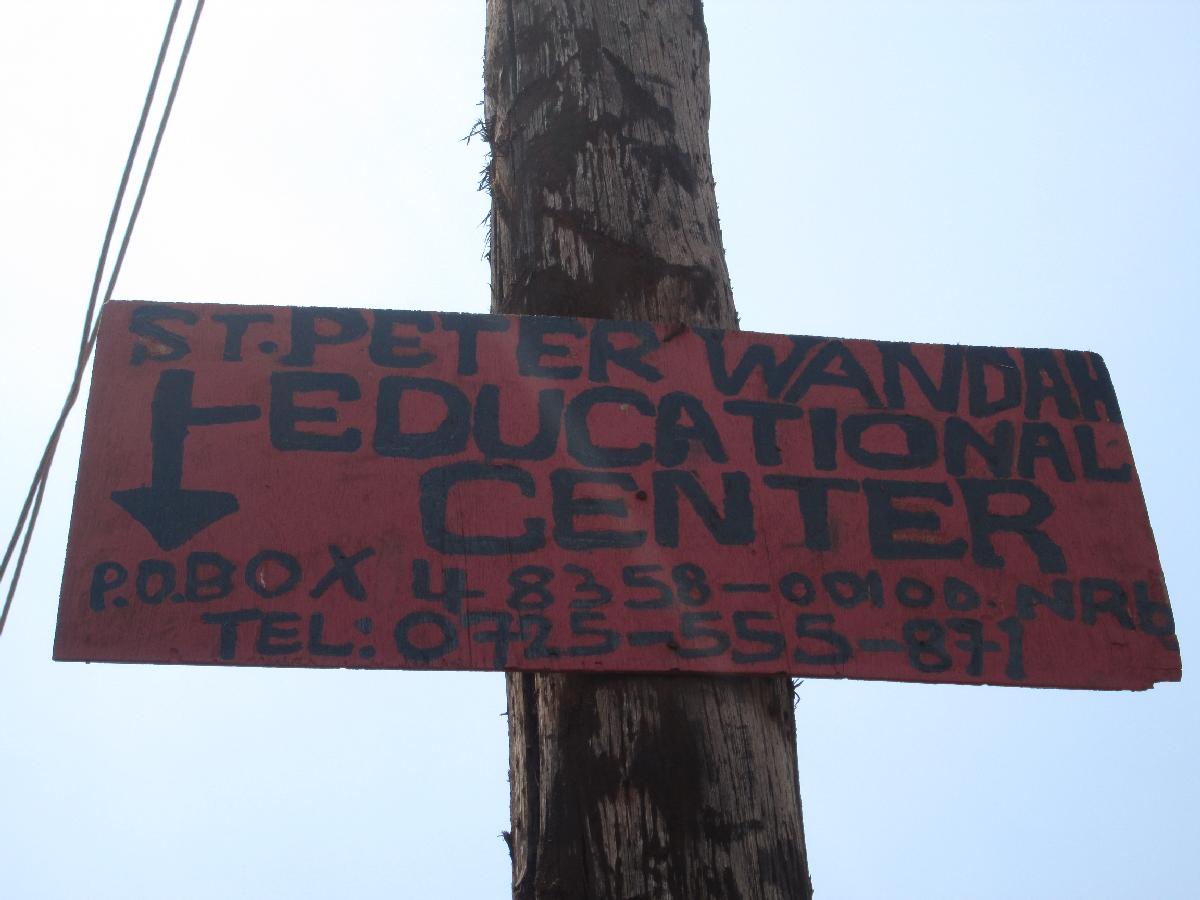 ST. PETER WANDAH
EDUCATIONAL
CENTER
P.O.BOX 48358-00100. NRb
TEL: 0725-555-871